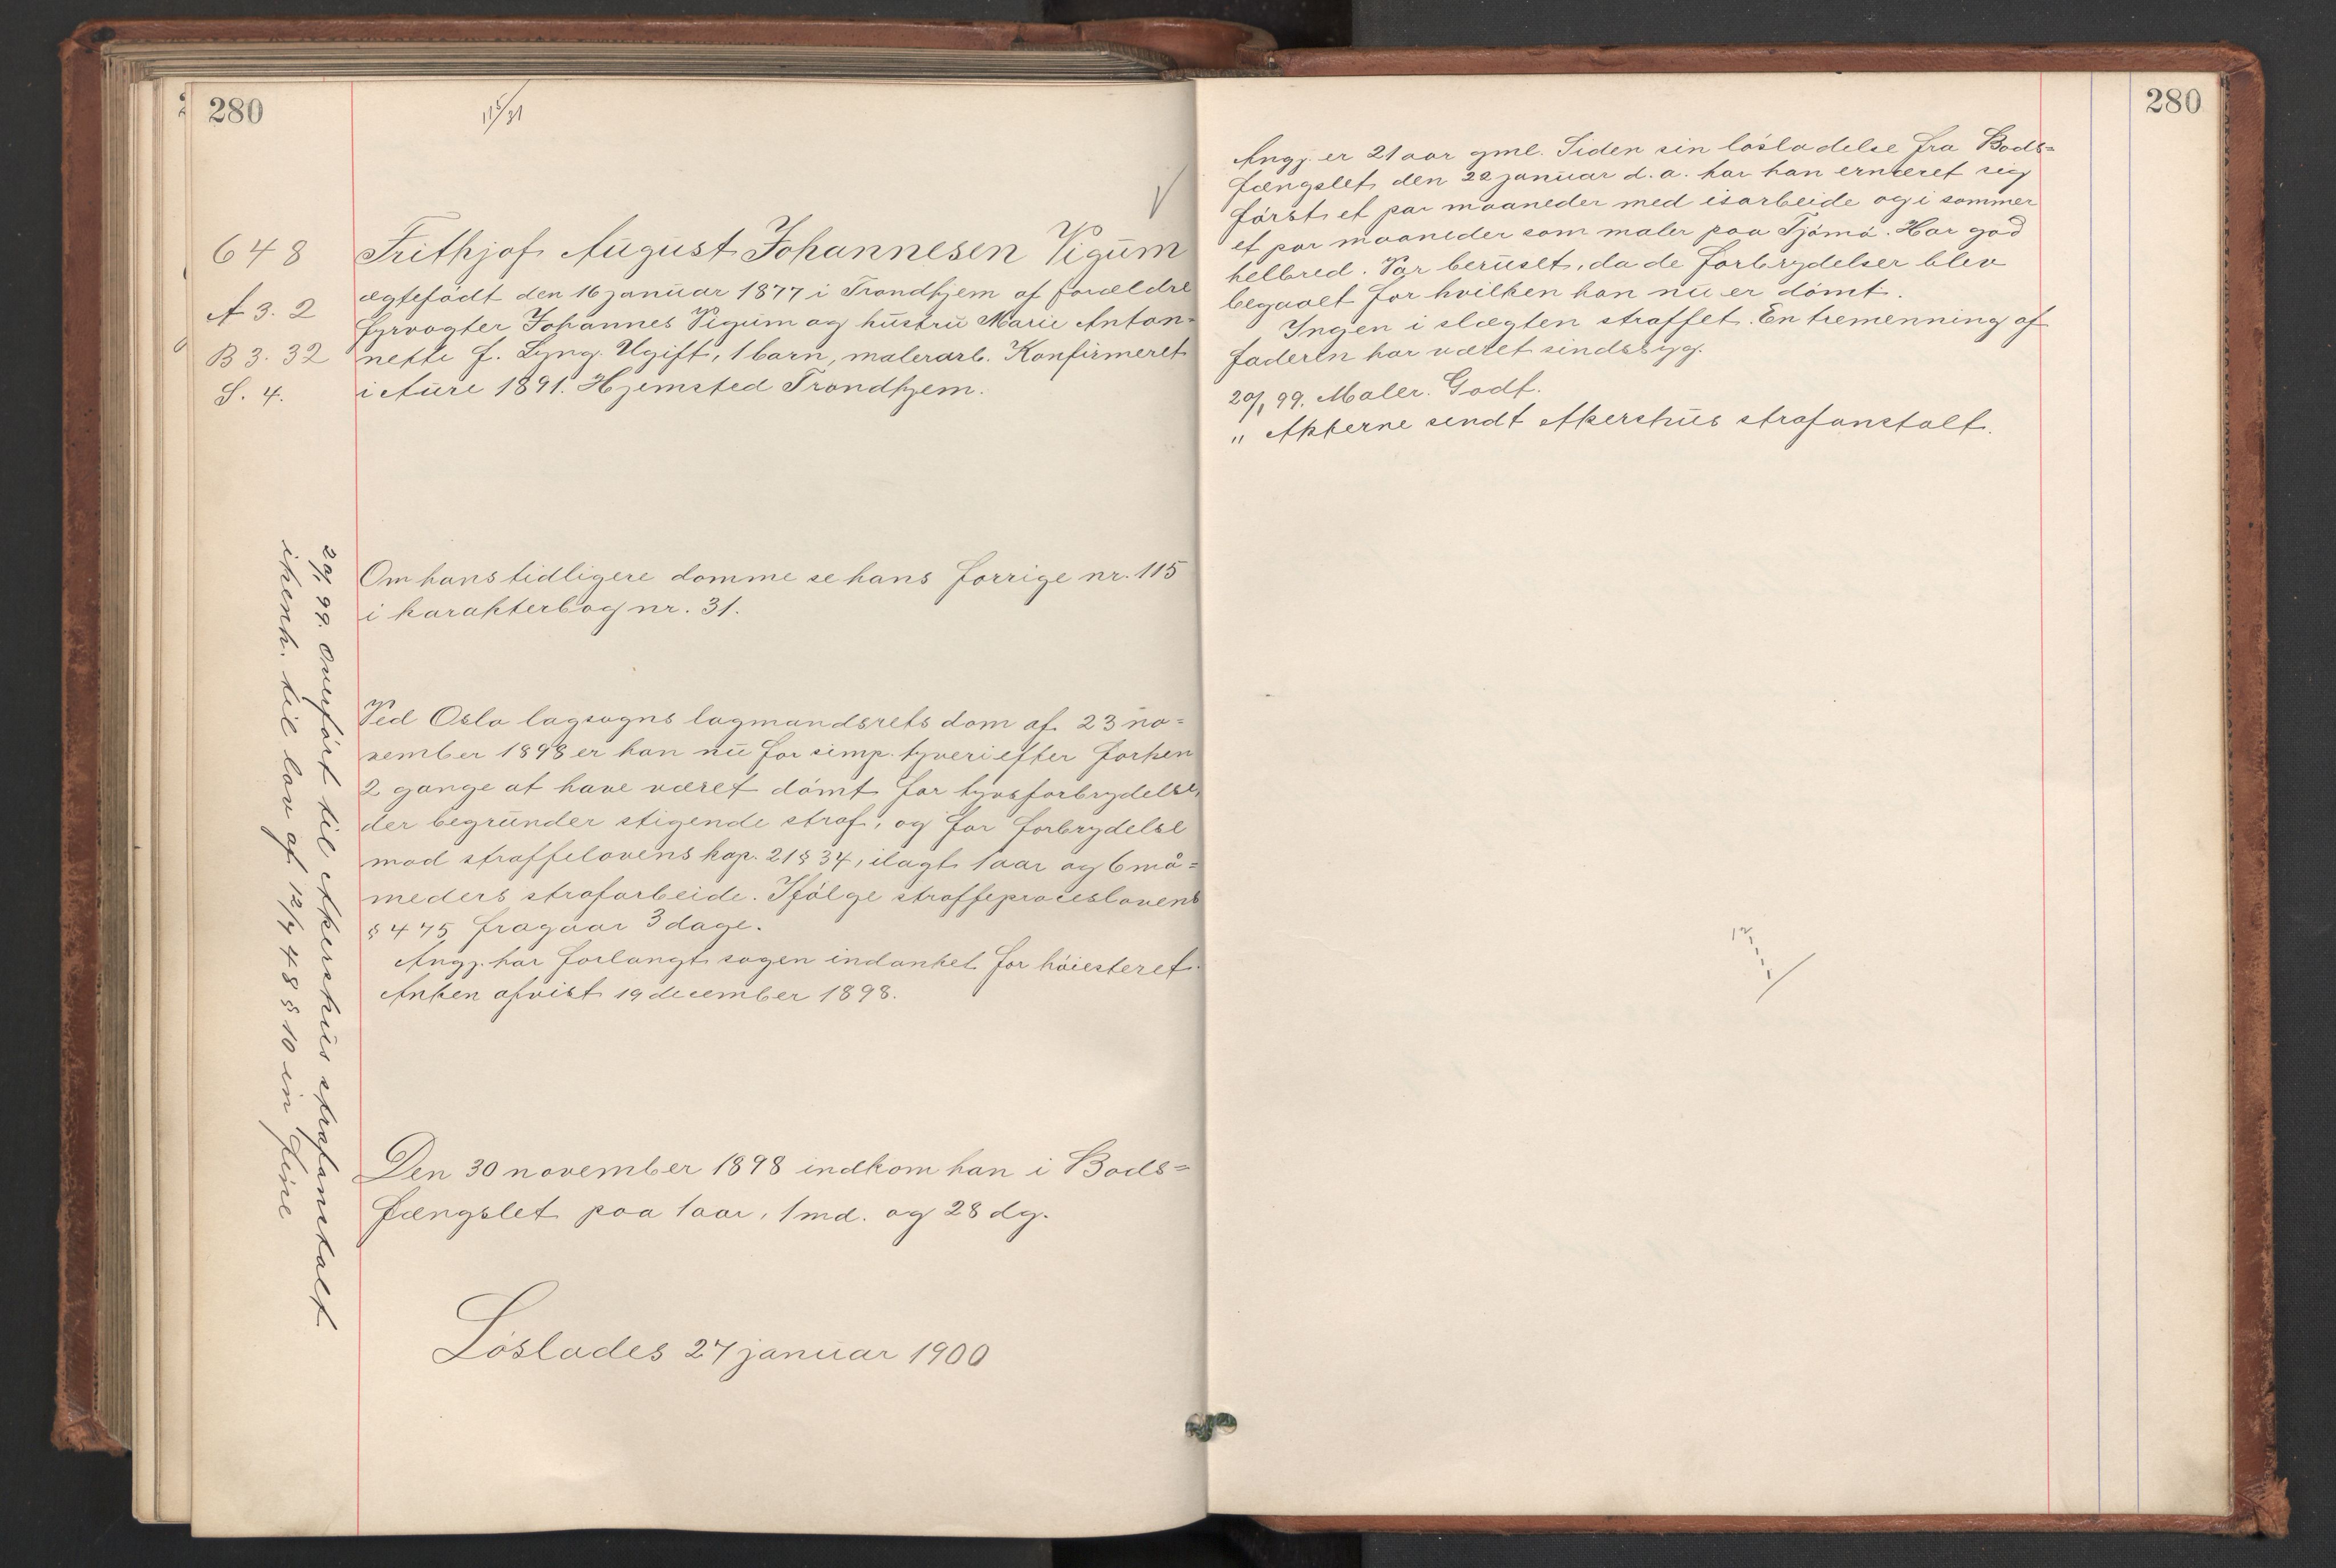 280
115/31
648
A 3. 2
B 3. 32
S. 4.
Frithjof August Johannesen Vigum
ægtefödt den 16 januar 1877 i Trondhjem af forældre
fyrvogter Johannes Vigum og hustru Marie Anton-
nette f. Lyng. Ugift, 1 barn, malerarb. Konfirmeret
i Aure 1891. Hjemsted Trondhjem.
Om hans tidligere domme se hans forrige nr. 115
i karakterbog nr. 31.
Ved Oslo lagsogns lagmandsrets dom af 23 no=
vember 1898 er han nu for simp. tyveri efter forhen
2 gange at have været dömt for tyvsforbrydelse,
der begrunder stigende straf, og for forbrydelse
mod straffelovens kap. 21 § 34, ilagt 1 aar og 6 må=
neders strafarbeide. Ifölge straffeproceslovens
§ 475 fragaar 3 dage.
Angj. har forlangt sagen indanket for höiesteret.
Anken afvist 19 december 1898.
Den 30 november 1898 indkom han i Bods=
fængslet paa 1 aar, 1 md. og 28 dg.
Löslades 27 januar 1900
20/1 99. Overfört til Akershus strafanstalt
ihenh. til lov af 12/7 48 § 10 in fine
280
Angj. er 21 aar gml. Siden sin lösladelse fra Bods=
fængslet den 22 januar d. a. har han ernæret sig
först et par maaneder med isarbeide og i sommer
et par maaneder som maler paa Tjömö. Har god
helbred. Var beruset, da de forbrydelser blev
begaaet for hvilken han nu er dömt.
Ingen i slægten straffet. En tremenning af
faderen har været sindssyg.
20/1 99. Maler. Godt.
" Akterne sendt Akershus strafanstalt.